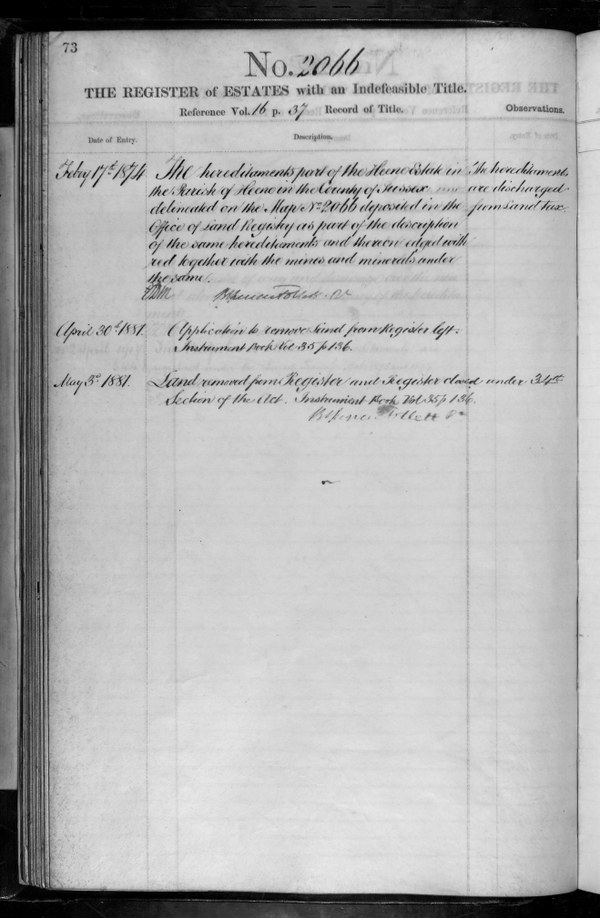 73
No. 2066
THE REGISTER of ESTATES with an Indefeasible Title.
Reference Vol. 16 p. 37 Record of Title.
Observations.
Date of Entry.
Description.
Febry 17th 1874
The hereditaments part of the Heene Estate in
the Parish of Heene in the County of Sussex
delineated on the Map No 2066 deposited in the
Office of Land Registry as part of the description
of the same hereditaments and thereon edged with
red together with the mines and minerals under
the same.
The hereditaments
are discharged
from Land tax.
April 30th 1881.
Application to remove Land from Register left.
Instrument Book Vol 35 p 136.
May 3rd 1881.
Land removed from Register and Register closed under 34th
Section of the Act. Instrument Book Vol 35 p 136.